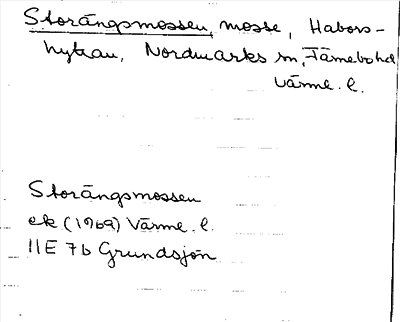 Storängsmossen, mosse, Habors-
hyttan, Nordmarks sn, Färnebo hd
Värml. l.
Storängsmossen
ek (1969) Värml. l.
11E 7b Grundsjön